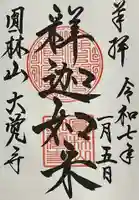 奉拝
令和七年
一月五日
釋迦如来
圓林山 大覚寺